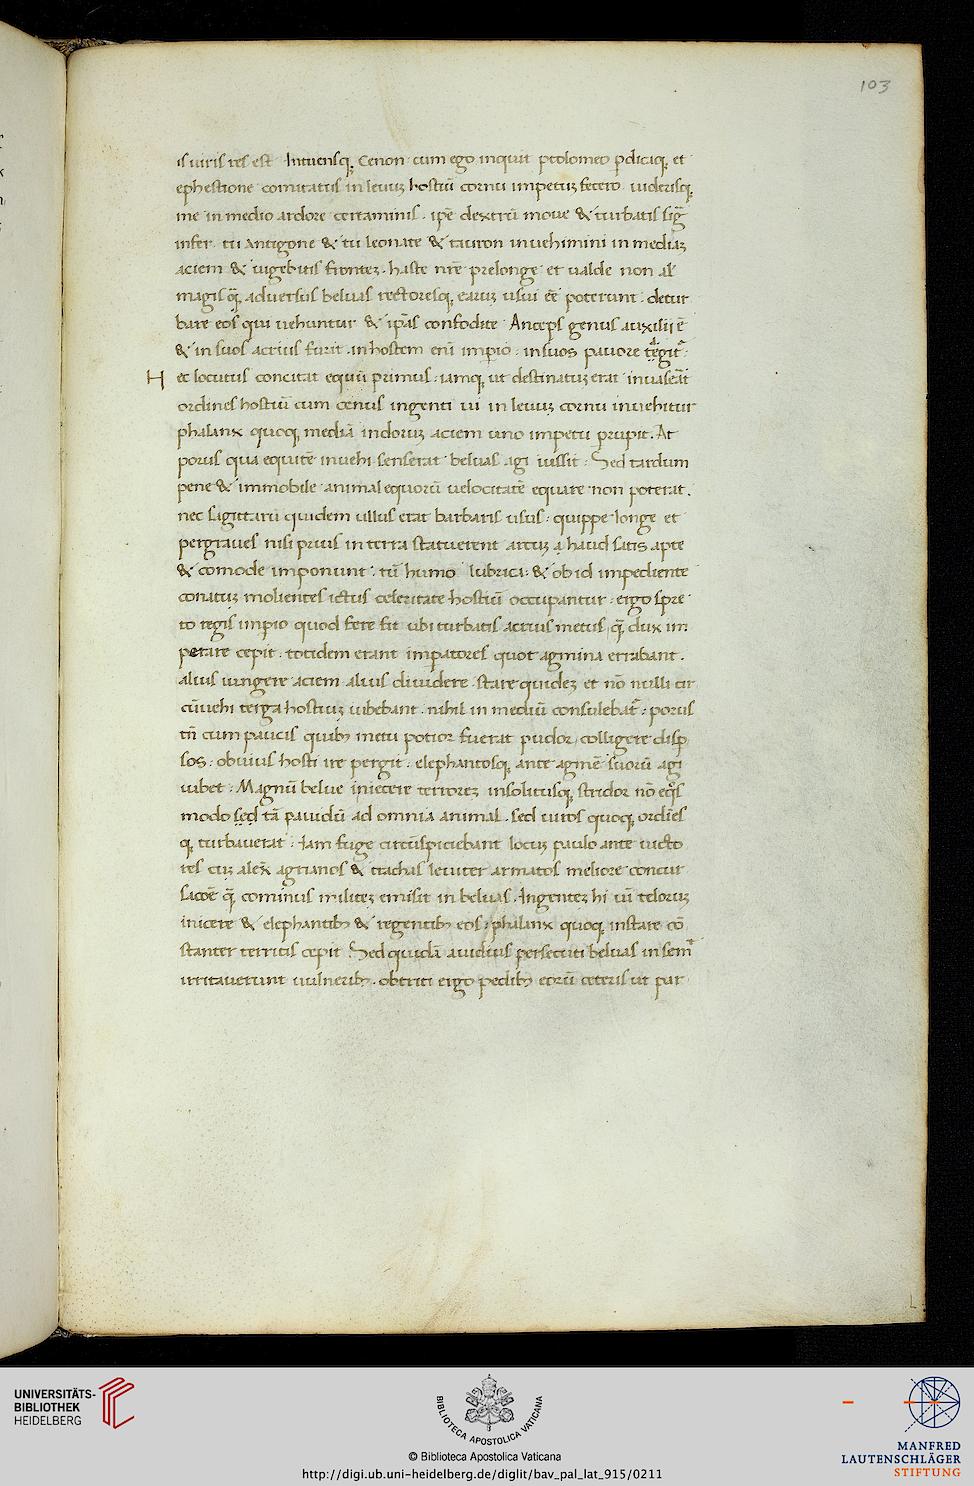 103
is uiris res est · Intuensq; Cenon · cum ego inquit ptolomeo pdicaq; et
ephestione comitatus in leuuz hostiū cornu impetuz fecero · uiderisq;
me in medio ardore certaminis · ipē dextrū moue & turbatis sig̃
infer · tu Antigone & tu leonate & tauron inuehimini in mediaz
aciem & urgebitis frontez · haste nrē prelonge et ualde non al
magis q̃ aduersus beluas rectoresq; earuz usui eē poterunt · detur
bare eos qui uehuntur & ipās confodite · Anceps genus auxilii ē
& in suos acrius furit · in hostem eni impio · in suos pauore
H ec locutus concitat equū primus · iamq; ut destinatuz erat inuaserāt
ordines hostiū cum cenus ingenti ui in leuuz cornu inuehitur
phalanx quoq; mediā indoruz aciem uno impetu prupit · At
porus qua equitē inuehi senserat beluas agi iussit : Sed tardum
pene & immobile animal equorū uelocitatē equare non poterat ·
nec sagittarū quidem ullus erat barbaris usus · quippe longe et
pergraues nisi prius in terra statuerent arcuz a haud satis apte
& comode imponunt · tū humo lubrica : & ob id impediente
conatuz molientes ictus celeritate hostiū occupantur · ergo spre
to regis impio quod fere fit ubi turbatis acrius metus q̃ dux im
perare cepit · totidem erant impatores quot agmina errabant ·
alius iungere aciem alius diuidere · stare quidez et nō nulli cir
cūuehi terga hostiuz iubebant · nihil in mediū consulebat̃ : porus
tn̄ cum paucis quibz metu potior fuerat pudor colligere disp
sos : obuius hosti ire pergit · elephantosq; ante agmē suorū agi
iubet : Magnū belue iniecere terrorez insolitusq; stridor nō eq̊s
modo sed tā pauidū ad omnia animal · sed uiros quoq; ordies
q; turbauerat : Iam fuge circūspiciebant locuz paulo ante uicto
res cuz alex̃ agrianos & trachas leuiter armatos meliore concur
sacoē q̃ cominus militez emisit in beluas · Ingentez hi uī teloruz
inicere & elephantibz & regentibz eos : phalanx quoq; instare cō
stanter territis cepit · Sed quidā auidius persecuti beluas in sem̃
irritauerunt uulneribz · obtriti ergo pedibz eorū ceteris ut par
UNIVERSITÄTS-
BIBLIOTHEK
HEIDELBERG
BIBLIOTECA APOSTOLICA VATICANA
© Biblioteca Apostolica Vaticana
http://digi.ub.uni-heidelberg.de/diglit/bav_pal_lat_915/0211
MANFRED
LAUTENSCHLÄGER
STIFTUNG